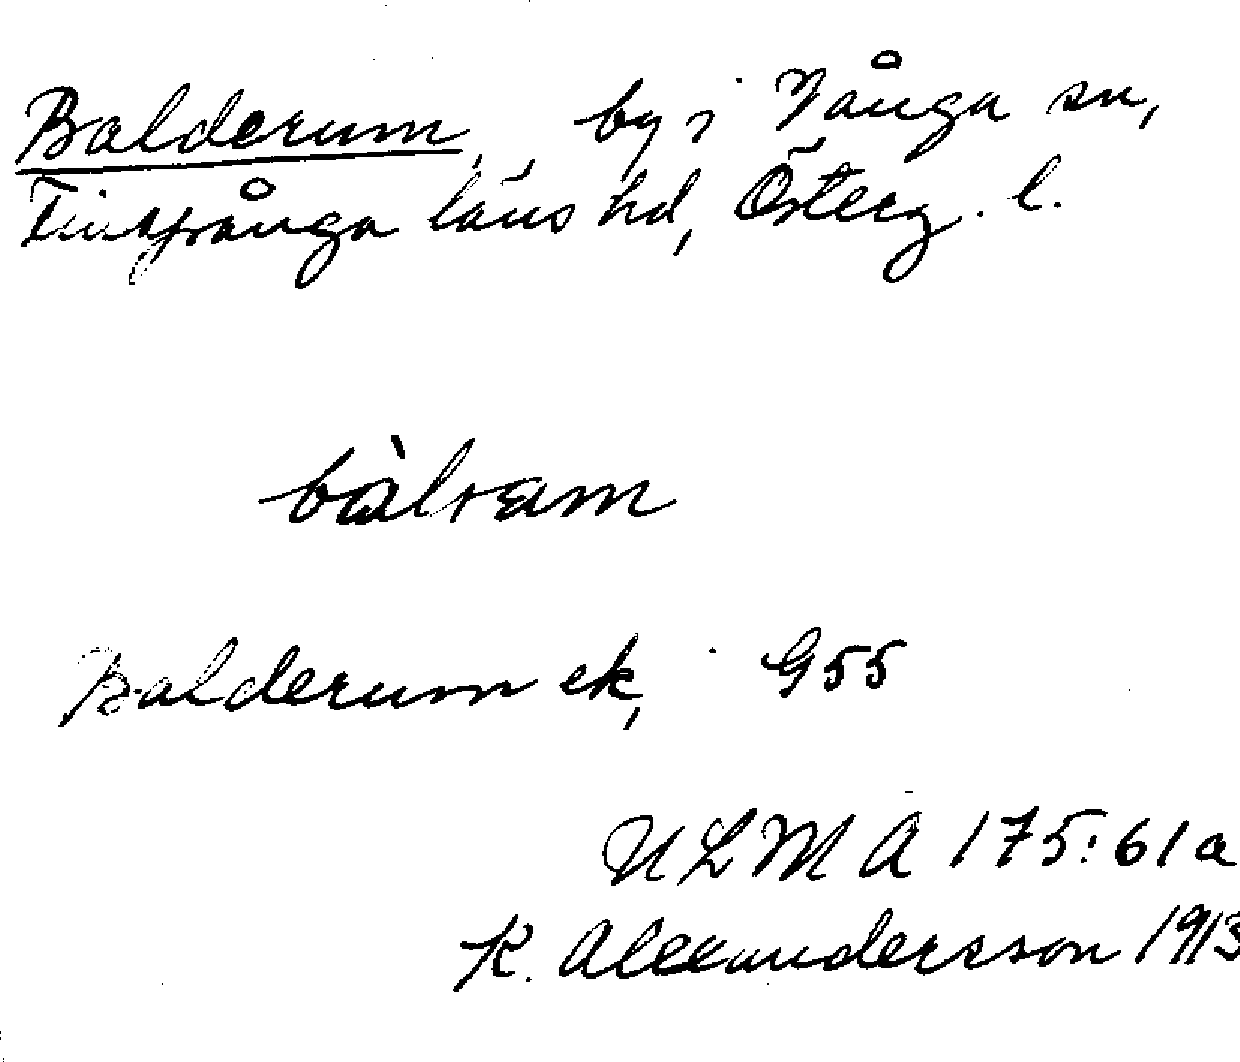 Balderum, by i Vånga sn,
Finspånga läns hd, Österg. l.
bàlram
Balderum ek, G55
ULMA 175:61a
K. Alexandersson 1913